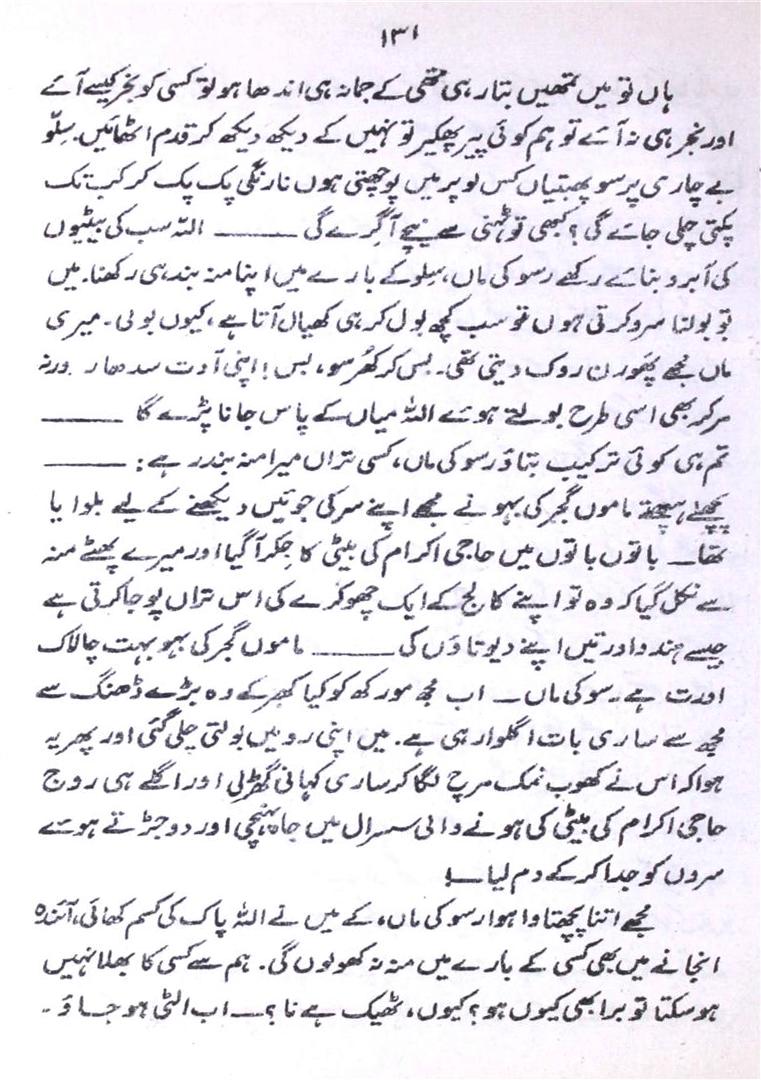 ۱۳۱
ہاں تو میں تمھیں بتا رہی تھی کے جمانہ ہی اندھا ہو تو کسی کو نجر کیسے آئے
اور نجر ہی نہ آئے تو ہم کوئی پیر پھکیر تو نہیں کے دیکھ دیکھ کر قدم اٹھائیں۔ سِلّو
بے چاری پر سو پھبتیاں کس لو پر میں پوچھتی ہوں نارنگی پک پک کر کب تک
پکتی چلی جائے گی؟ کبھی تو ٹہنی سے نیچے آ گرے گی ــــــــ اللہ سب کی بیٹیوں
کی آبرو بنائے رکھے رسو کی ماں، سِلو کے بارے میں اپنا منہ بند ہی رکھنا۔ میں
تو بولنا سرو کرتی ہوں تو سب کچھ بول کر ہی کھیال آتا ہے، کیوں بولی۔ میری
ماں مجھے پھورن روک دیتی تھی۔ بس کر کھُرسو، بس! اپنی آدت سدھار ورنہ
مر کر بھی اسی طرح بولتے ہوئے اللہ میاں کے پاس جانا پڑے گا ــــــــ
تم ہی کوئی ترکیب بتاؤ رسو کی ماں، کسی تراں میرا منہ بند رہے: ــــــــ
پچھلے ہپھتے ماموں گجر کی بہو نے مجھے اپنے سر کی جوئیں دیکھنے کے لیے بلوایا
تھا ــ باتوں باتوں میں حاجی اکرام کی بیٹی کا جکر آ گیا اور میرے پھٹے منہ
سے نکل گیا کہ وہ تو اپنے کالج کے ایک چھوکرے کی اس تراں پوجا کرتی ہے
جیسے ہندو اورتیں اپنے دیوتاؤں کی ــــــــ ماموں گجر کی بہو بہت چالاک
اورت ہے رسو کی ماں ــ اب مجھ مورکھ کو کیا کھبر کے وہ بڑے ڈھنگ سے
مجھ سے ساری بات اگلوا رہی ہے۔ میں اپنی رو میں بولتی چلی گئی اور پھر یہ
ہوا کہ اس نے کھوب نمک مرچ لگا کر ساری کہانی گھڑ لی اور اگلے ہی روج
حاجی اکرام کی بیٹی کی ہونے والی سسرال میں جا پہنچی اور دو جڑتے ہوئے
سروں کو جدا کر کے دم لیا ــ!
مجھے اتنا پچھتاوا ہوا رسو کی ماں، کے میں نے اللہ پاک کی کسم کھائی، آئندہ
انجانے میں بھی کسی کے بارے میں منہ نہ کھولوں گی۔ ہم سے کسی کا بھلا نہیں
ہو سکتا تو برا بھی کیوں ہو؟ کیوں، ٹھیک ہے نا؟ ــ اب الٹی ہو جاؤ۔